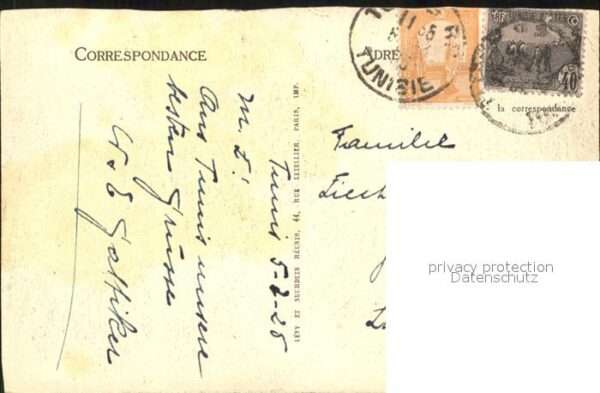 CORRESPONDANCE
ADRE
TUNISIE
40
la correspondance
Tunis 5-2-25
M. L!
Aus Tunis unsere
besten Grüsse
W & E Gattiker
LÉVY ET NEURDEIN RÉUNIS, 44, RUE LETELLIER, PARIS, IMP.
Familie
privacy protection
Datenschutz